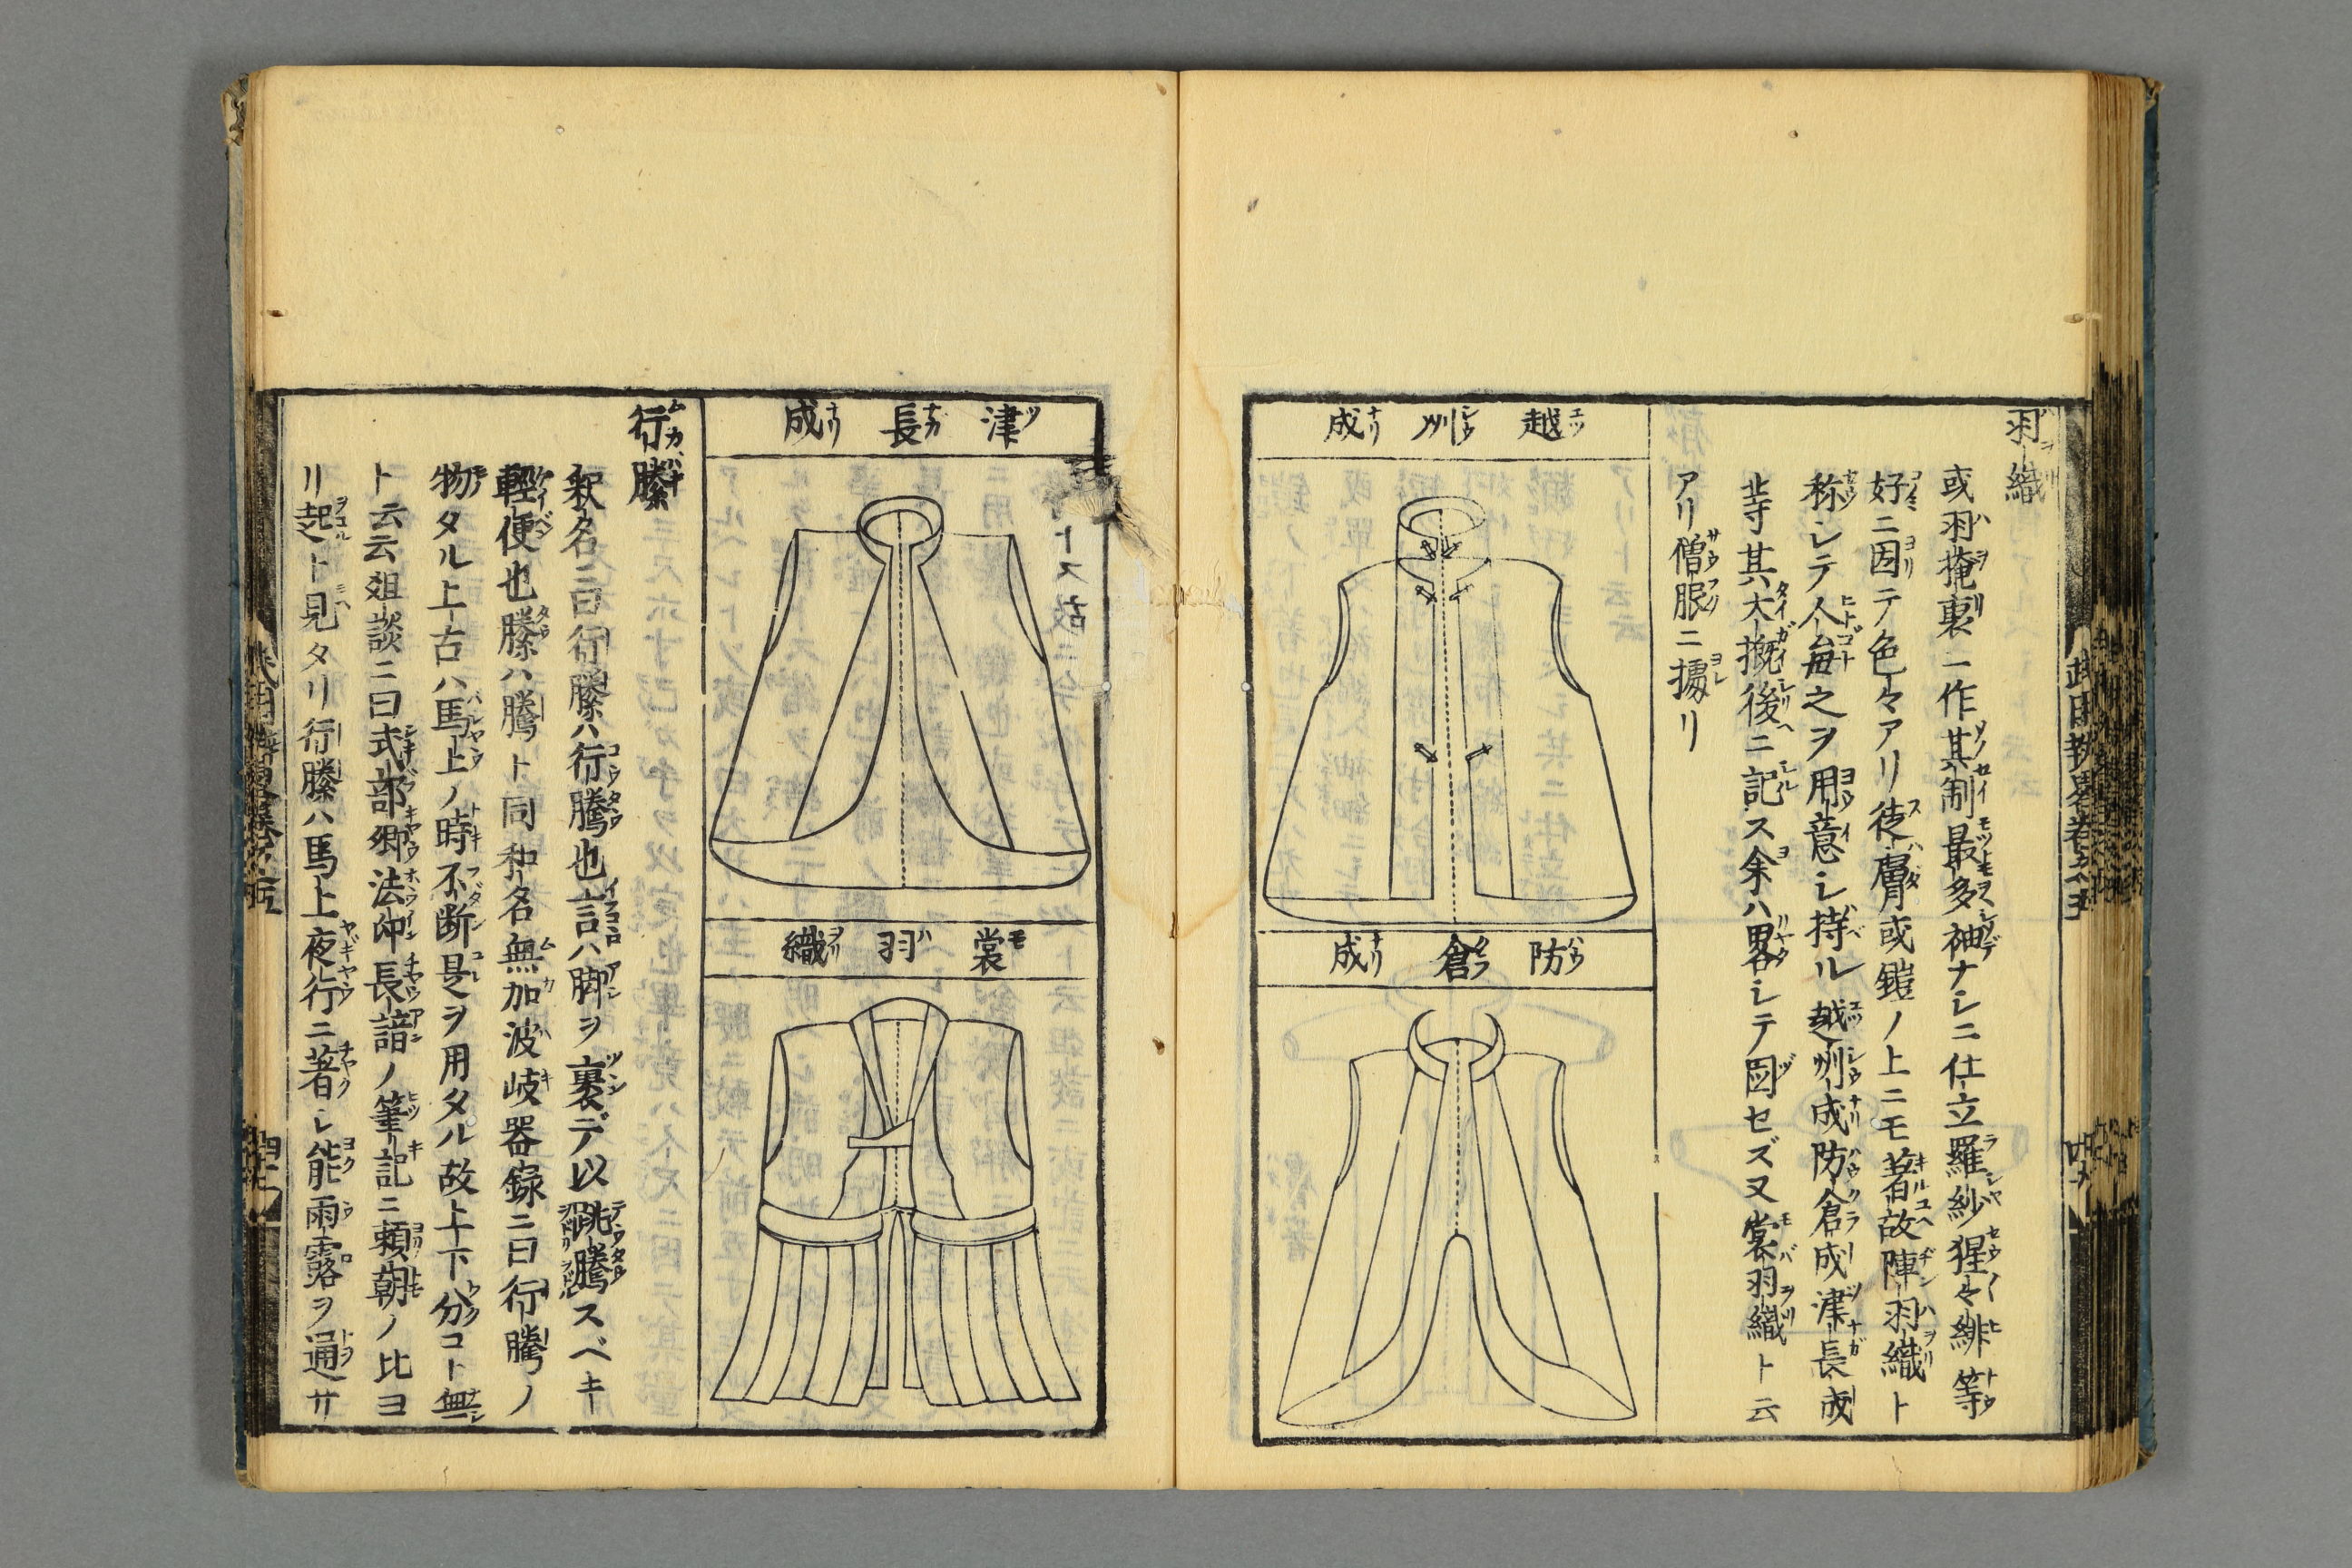 羽織
或羽掩裏一作其制最多袖ナシニ仕立羅紗猩々緋等
好ニ因テ色々アリ徒膚或鎧ノ上ニモ著故陣羽織ト
称シテ人毎之ヲ用意シ持ル越州成防倉成津長成
等其大概後ニ記ス余ハ畧シテ図セズ又裳羽織ト云
アリ僧服ニ據リ
越州成
防倉成
津長成
裳羽織
行縢
釈名ニ曰行縢ハ行騰也言ハ脚ヲ裏デ以跳騰スベキ
輕便也縢ハ騰ト同和名無加波岐器録ニ曰行騰ノ
物タル上古ハ馬上ノ時不断是ヲ用タル故上下分コト無
ト云云爼談ニ曰式部卿法印長諳ノ筆記ニ頼朝ノ比ヨ
リ起ト見タリ行縢ハ馬上夜行ニ著シ能雨露ヲ通サ